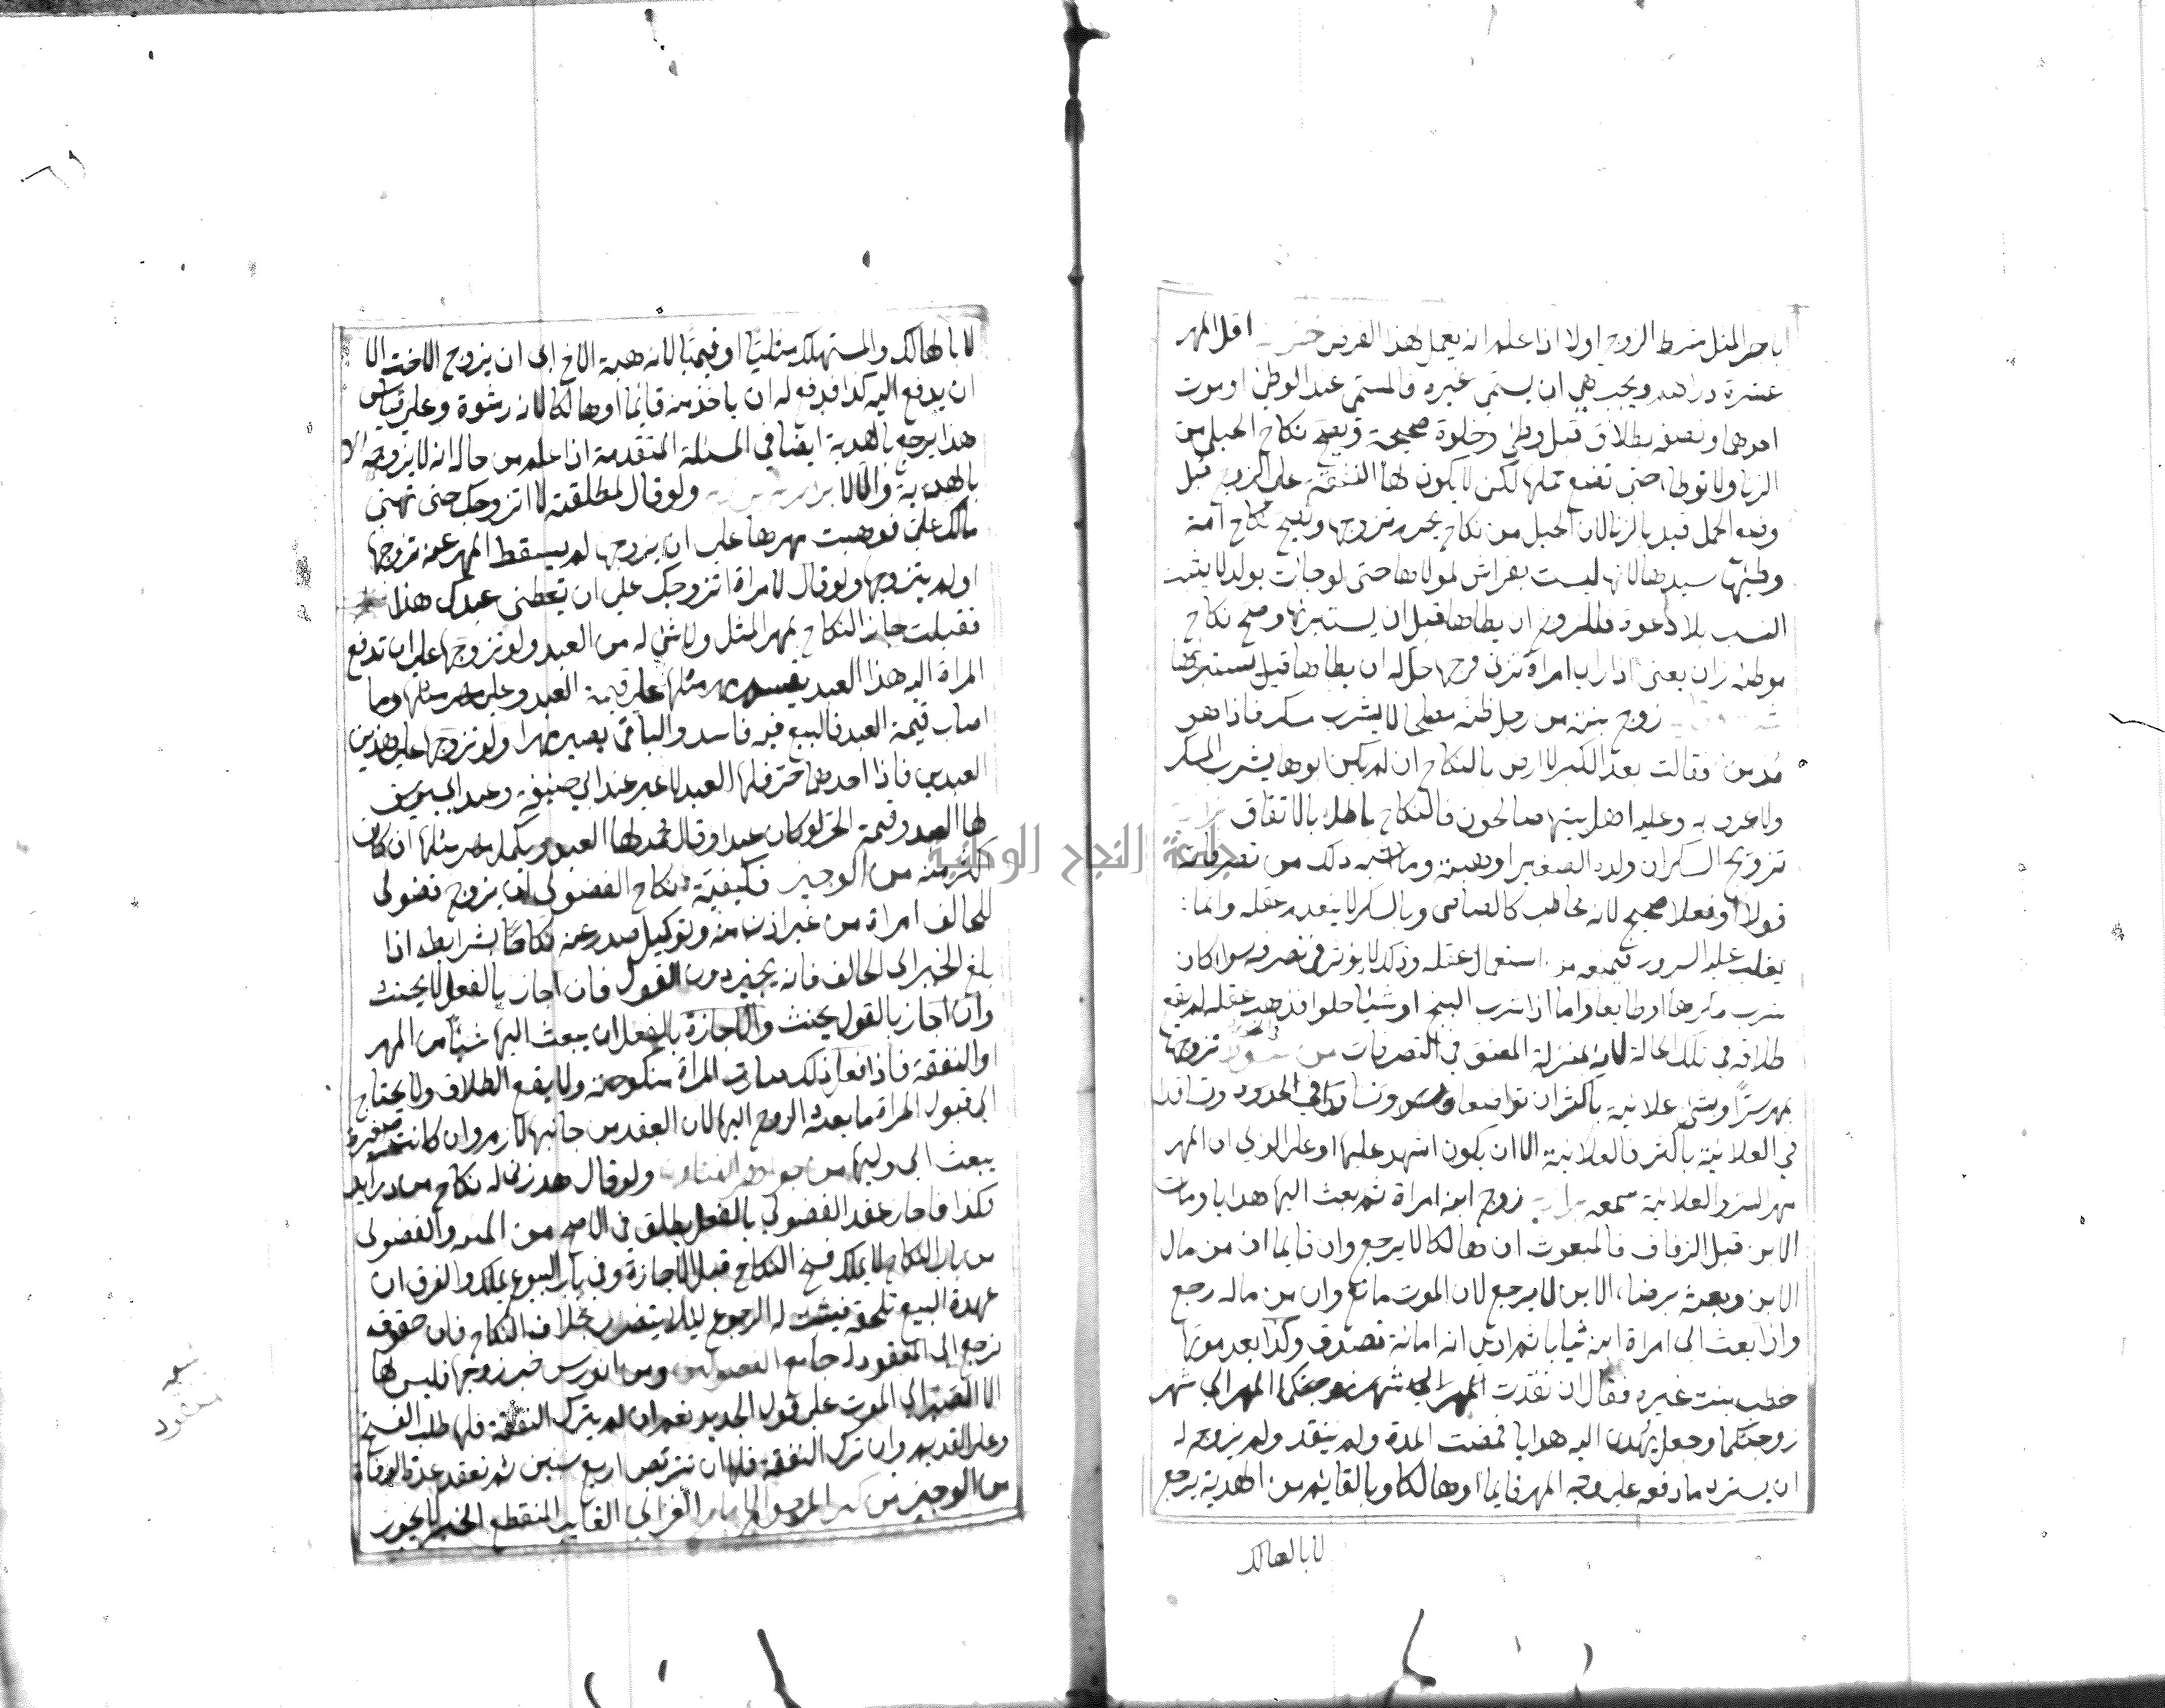 باجر المثل شرط الزوج اولا اذا علم انه يعمل لهذا الغرض اقل المهر
عشرة دراهم ويجب هي ان يسمى غيره فالمسمى عند الوطئ او موت
احدهما ونصفه بطلاق قبل وطئ وخلوة صحيحة ويصح نكاح الحبلى من
الزنا ولا توطا حتى تضع حملها لكن لا يكون لها النفقة على الزوج قبل
وضع الحمل قيد بالزنا لان الحبل من نكاح يحرم تزوجها ويصح نكاح امة
وطئها سيدها لانها ليست بفراش لمولاها حتى لو جات بولد لا يثبت
النسب بلا دعوة فللزوج ان يطاها قبل ان يستبرئها وصح نكاح
موطئه زان يعنى اذا راى امراة تزنى فتزوجها حل له ان يطاها قبل يستبرئها
زوج بنته من رجل ظنه مصلحا لا يشرب مسكر فاذا هو
مدمن فقالت بعد الكبر لا ارض بالنكاح ان لم يكن ابوها يشرب المسكر
ولا عرف به وعليه اهل بيتها صالحون فالنكاح باطل بالاتفاق
تزويج السكران ولده الصغير او هبته وما اشبه ذلك من تصرفاته
قولا او فعلا صحيح لانه مخاطب كالصاحى وبالسكر لا ينعدم عقله وانما
يغلب عليه السرور فيمنعه من استعمال عقله وذلك لا يوثر فى تصرفه سوا كان
شرب مكرها او طايعا واما اذا شرب البنج او شيئا حلوا فذهب عقله لم يقع
طلاقه فى تلك الحالة لانه بمنزلة المعتق فى التصرفات من تزوجها
بمهر سرا وبشئ علانية باكثر ان تواضعا
في العلانية باكثر فالعلانية الا ان يكون اشهد عليها او على الولى ان المهر
مهر السر والعلانية سمعه زوج ابنه امراة ثم بعث اليها هدايا ومات
الابن قبل الزفاف فالمبعوث ان هالكا لا يرجع وان قايما ان من مال
الابن وبعثه برضاء الابن لا يرجع لان الموت مانع وان من ماله رجع
واذا بعث الى امراة ابنه ثيابا ثم ادعى انه امانة تصدق وكذا بعد موتها
خطب بنت غيره فقال ان نقدت المهر الى شهر زوجتكها المهر الى شهر
زوجتكها وجعل يهدى اليه هدايا فمضت المدة ولم ينقد ولم يزوجه له
ان يسترد ما دفعه على وجه المهر قايما او هالكا وبالقايم من الهدية يرجع
لا بالهالك
لا بالهالك والمستهلك مثليا او قيميا لانه هبة الاخ ابى ان يزوج الاخت الا
ان يدفع اليه كذا فدفع له ان ياخذ منه قائما او هالكا لانه رشوة وعلى قياس
هذا يرجع بالهدية ايضا في المسئلة المتقدمة اذا علم من حاله انه لا يزوجه الا
بالهدية والا لا ولو قال لمطلقته لا اتزوجك حتى تهبنى
مالك على فوهبت مهرها على ان يتزوجها لم يسقط المهر عنه تزوجها
او لم يتزوجها ولو قال لامراة اتزوجك على ان تعطنى عبدك هذا
فقبلت جاز النكاح بمهر المثل ولا شئ له من العبد ولو تزوجها على ان تدفع
المراة اليه هذا العبد يقسم مهر مثلها على قيمة العبد وعلى مهر مثلها وما
اصاب قيمة العبد فالبيع فيه فاسد والباقى يصير مهرا ولو تزوجها على هذين
العبدين فاذا احدهما حر فلها العبد لا غير عند ابي حنيفه وعند ابى يوسف
لها العبد وقيمة الحر لو كان عبدا وقال محمد لها العبد ويكمل مهر مثلها ان كان
اكثر منه من الوجيز فكيفية نكاح الفضولى ان يزوج فضولى
للحالف امراة من غير اذن منه وتوكيل صدر عنه نكاحا بشرايطه اذا
بلغ الخبر الى الحالف فانه يجيز دون القول فان اجاز بالفعل لا يحنث
وان اجاز بالقول يحنث والاجازة بالفعل ان يبعث اليها شيئا من المهر
والنفقة فاذا فعل ذلك صارت المراة منكوحته ولا يقع الطلاق ولا يحتاج
الى قبول المراة ما بعثه الزوج اليها لان العقد من جانبها لازم وان كانت صغيرة
يبعث الى وليها من جواهر الفتاوى ولو قال هر زنى له نكاح من درايد
فكذا فاجاز عقد الفضولى بالفعل يطلق فى الاصح من المنيه والفضولى
من باب النكاح لا يملك فسخ النكاح قبل الاجازة وفى باب البيوع يملك والفرق ان
عهدة البيع تلحقه فيثبت له الرجوع ليلا يتضرر بخلاف النكاح فان حقوقه
ترجع الى المعقود له جامع الفصولين خبر زوجها فليس لها
الا الصبر الى الموت على قول الجديد نعم ان لم يترك النفقة فلها طلب الفسخ
وعلى القديم وان ترك النفقة فلها ان تتربص اربع سنين ثم تعتد عدة الوفاة
من الوجيز الغزالى الغايب المنقطع الخبر لا يجوز
مفقود
جامعة النجاح الوطنية